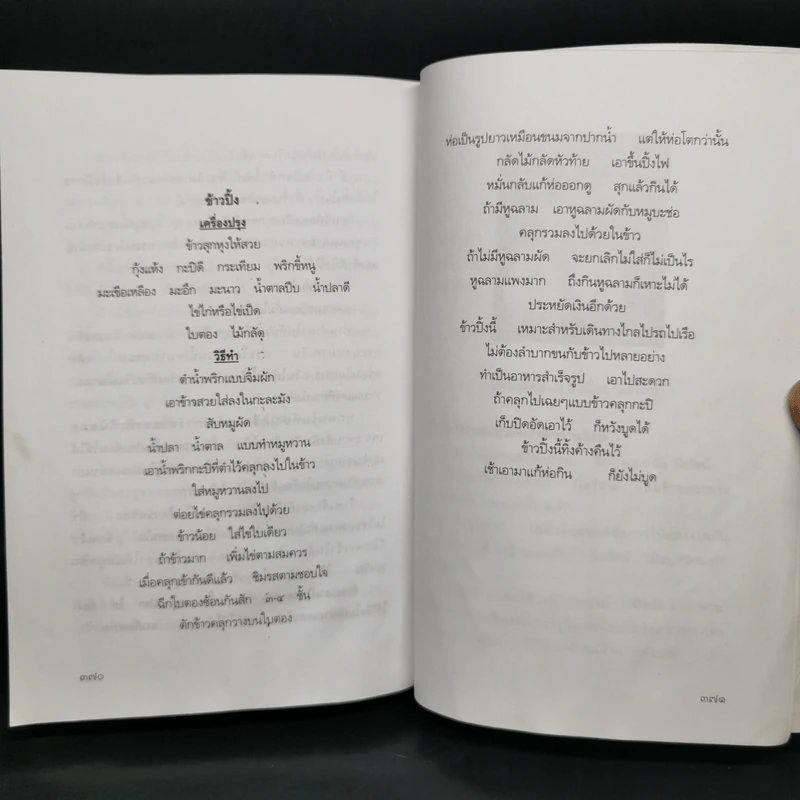 ข้าวปิ้ง
เครื่องปรุง
ข้าวสุกหุงให้สวย
กุ้งแห้ง กะปิดี กระเทียม พริกขี้หนู
มะเขือเหลือง มะอึก มะนาว น้ำตาลปีบ น้ำปลาดี
ไข่ไก่หรือไข่เป็ด
ใบตอง ไม้กลัด
วิธีทำ
ตำน้ำพริกแบบจิ้มผัก
เอาข้ารสวยใส่ลงในกะละมัง
สับหมูผัด
น้ำปลา น้ำตาล แบบทำหมูหวาน
เอาน้ำพริกกะปิที่ตำไว้คลุกลุงไปในข้าว
ใส่หมูหวานลงไป
ต่อยไข่คลุกรวมลงไปด้วย
ข้าวน้อย ใส่ไข่ใบเดียว
ถ้าข้าวมาก เพิ่มไข่ตามสมควร
เมื่อคลุกเข้ากันดีแล้ว ชิมรสตามชอบใจ
ฉีกใบตองซ้อนกันสัก ๓-๔ ชั้น
ตักข้าวคลุกวางบนใบตอง
๓๗๐
ห่อเป็นรูปยาวเหมือนขนมจากปากน้ำ แต่ให้ห่อโตกว่านั้น
กลัดไม้กลัดหัวท้าย เอาขึ้นปิ้งไฟ
หมั่นกลับแก้ห่อออกดู สุกแล้วกินได้
ถ้ามีหูฉลาม เอาหูฉลามผัดกับหมูบะช่อ
คลุกรวมลงไปด้วยในข้าว
ถ้าไม่มีหูฉลามผัด จะยกเลิกไม่ใส่ก็ไม่เป็นไร
หูฉลามแพงมาก ถึงกินหูฉลามก็เหาะไม่ได้
ประหยัดเงินอีกด้วย
ข้าวปิ้งนี้ เหมาะสำหรับเดินทางไกลไปรถไปเรือ
ไม่ต้องลำบากขนกับข้าวไปหลายอย่าง
ทำเป็นอาหารสำเร็จรูป เอาไปสะดวก
ถ้าคลุกไปเฉยๆแบบข้าวคลุกกะปิ
เก็บปิดอัดเอาไว้ ก็หวังบูดได้
ข้าวปิ้งนี้ทิ้งค้างคืนไว้
เช้าเอามาแก้ห่อกิน ก็ยังไม่บูด
๓๗๑